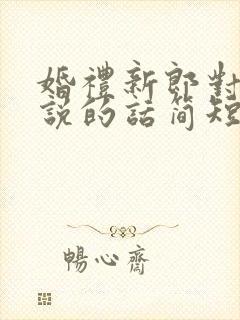 婚禮新郎對
說的話简短
暢心齋